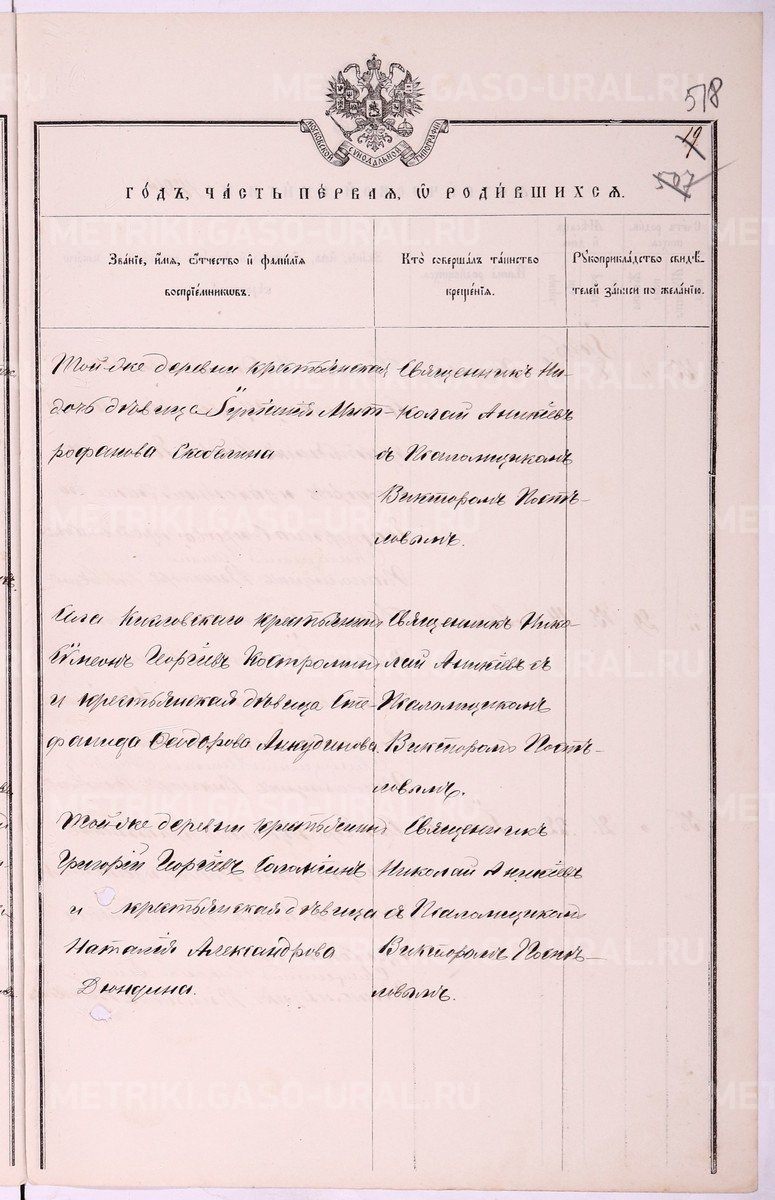 518
19
507
МОСКОВСКОЙ СѴНОДАЛЬНОЙ ТИПОГРАФІИ
ГО́ДЪ, ЧА́СТЬ ПЕ́РВАЯ, Ѡ҆ РОДИ́ВШИХСЯ.
Зва́ніе, и҆́мя, ѻ҆́тчество и҆ фами́лїя
воспрїе́мниковъ.
Кто̀ соверша́лъ та́инство
креще́нїя.
Рꙋкоприкла́дство свидѣ́-
телей за́писи по жела́нїю.
Той-же деревни крестьянская
дочь дѣвица Мит-
рофанова Скобелина
Священникъ Ни-
колай Аникіевъ
съ Псаломщикомъ
Викторомъ Посте-
ловымъ.
Села Киповскаго крестьянинъ
Сѵмеонъ Георгіевъ Костромин
и крестьянская дѣвица Сте-
фанида Ѳеодорова Анкудинова
Священникъ Нико-
лай Аникіевъ съ
Псаломщикомъ
Викторомъ Посте-
ловымъ.
Той-же деревни крестьянинъ
Григорій Георгіевъ Соломеинъ
и крестьянская дѣвица
Наталія Александрова
Дюндина.
Священникъ
Николай Аникіевъ
съ Псаломщикомъ
Викторомъ Посте-
ловымъ.
METRIKI.GASO-URAL.RU